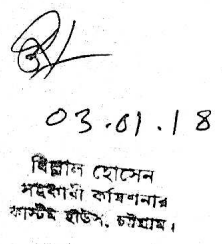 03.01.18
বিল্লাল হোসেন
সহকারী কমিশনার
কাস্টম হাউস, চট্টগ্রাম।